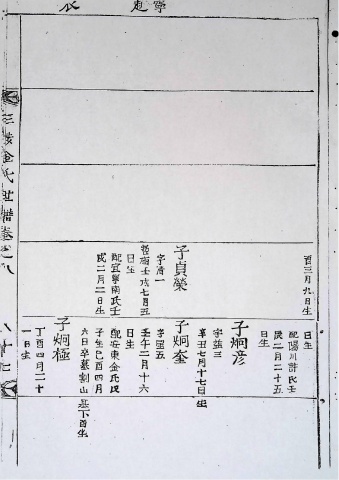 寧越
酉三月九日生
子貞榮
字清一
哲宗壬戌七月五
日生
配宜寧南氏壬
戌二月二日生
日生
配陽川許氏壬
辰二月二十五
日生
子炯彦
字雄三
辛丑七月十七日生
子炯奎
字聖五
壬午二月十六
日生
配安東金氏戊
子生己酉四月
六日卒墓割山
墓下酉坐
子炯極
丁酉四月二十
一日生
金氏世譜卷之八
八十七